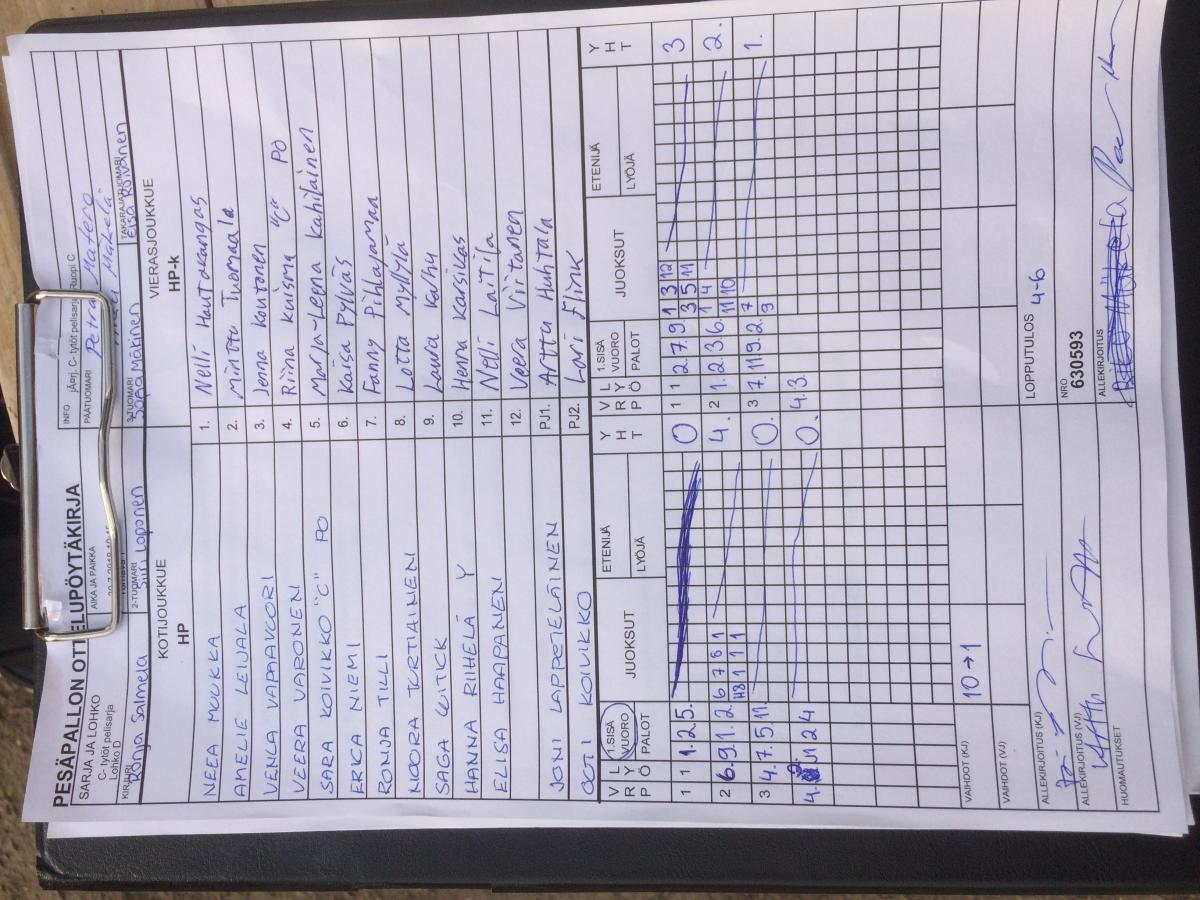 PESÄPALLON OTTELUPÖYTÄKIRJA
SARJA JA LOHKO
C- tytöt pelisarja
Lohko D
AIKA JA PAIKKA
INFO
C- tytöt pelisarja Ruopi C
PÄÄTUOMARI
Petra Matero
KIRJURI
Ronja Salmela
2-TUOMARI
Siiri Loponen
3-TUOMARI
Saaa Mäkinen
TAKARAJATUOMARI
Elsa Roivanen
KOTIJOUKKUE
HP
VIERASJOUKKUE
HP-k
NEEA MOUKKA 1. Nelli Hautakangas
AMELIE LEIJALA 2. Minttu Tuomaala
VENLA VAPAAVUORI 3. Jenna Koutonen
VEERA VARONEN 4. Riina Kuisma "C" PO
SARA KOIVIKKO "C" PO 5. Marja-Leena Kahilainen
ERICA NIEMI 6. Kaisa Pylväs
RONJA TILLI 7. Fanny Pihlajamaa
NOORA TURTIAINEN 8. Lotta Myllylä
SAGA WITICK 9. Laura Karhu
HANNA RIIHELÄ Y 10. Henna Karsikas
ELISA HAAPANEN 11. Nelli Laitila
12. Veera Viitanen
JONI LAPPETELÄINEN PJ1. Arttu Huhtala
OOTI KOIVIKKO PJ2. Lari Flink
V R P L Y Ö 1.SISÄ VUORO PALOT JUOKSUT ETENIJÄ LYÖJÄ Y H T V R P L Y Ö 1.SISÄ VUORO PALOT JUOKSUT ETENIJÄ LYÖJÄ Y H T
1 1 1.2.5. 0 1 1 2.7.9. 1 3 12 3
3 5 11
2 6. 9.1.2. 6 7 8 1 4. 2 1. 2.3.6. 1 4 2.
H3 1 1 1 11 10
3 4. 7.5.11. 0. 3 7. 11.9.2. 7 1.
9
4. 1 2 4 0. 4.3.
VAIHDOT (KJ)
10→1
VAIHDOT (VJ)
ALLEKIRJOITUS (KJ)
LOPPUTULOS
4-6
ALLEKIRJOITUS (VJ)
NRO
630593
HUOMAUTUKSET
ALLEKIRJOITUS